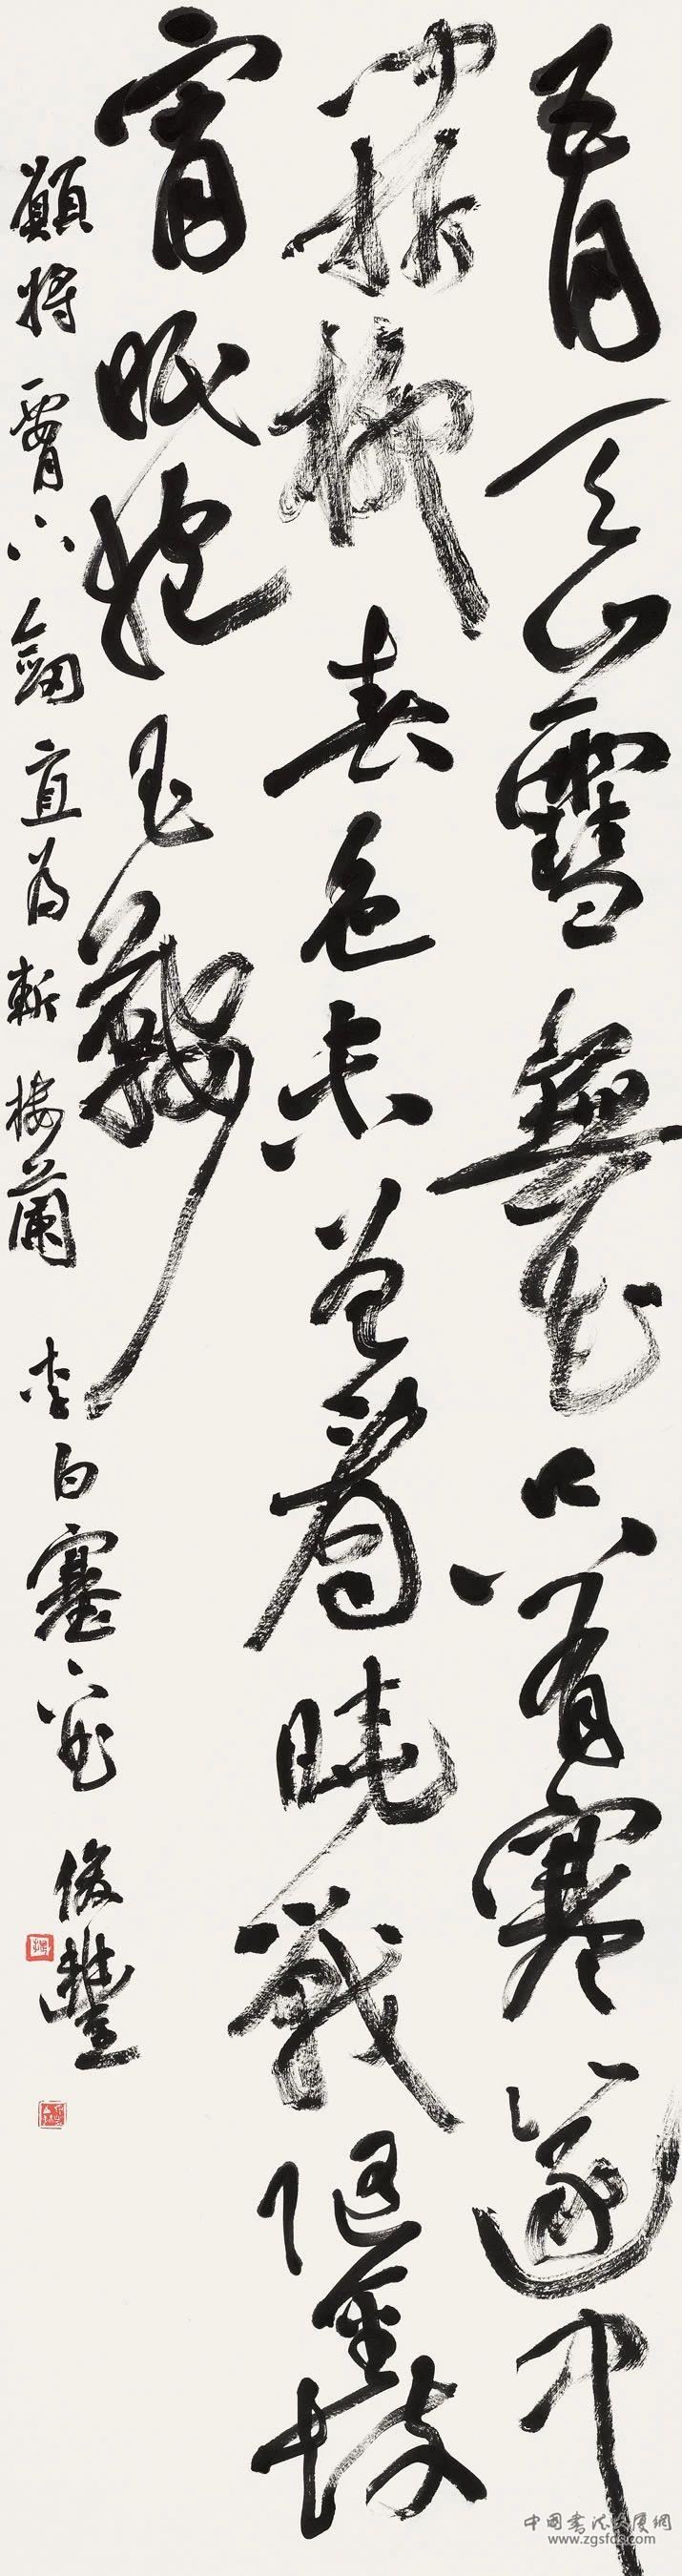 五月天山雪無花只有寒篴中
聞折柳春色未曾看曉戰隨金鼓
宵眠抱玉鞍
願將腰下劍直為斬樓蘭 李白塞下曲 俊豐
中國書法發展網
www.zgsfds.com